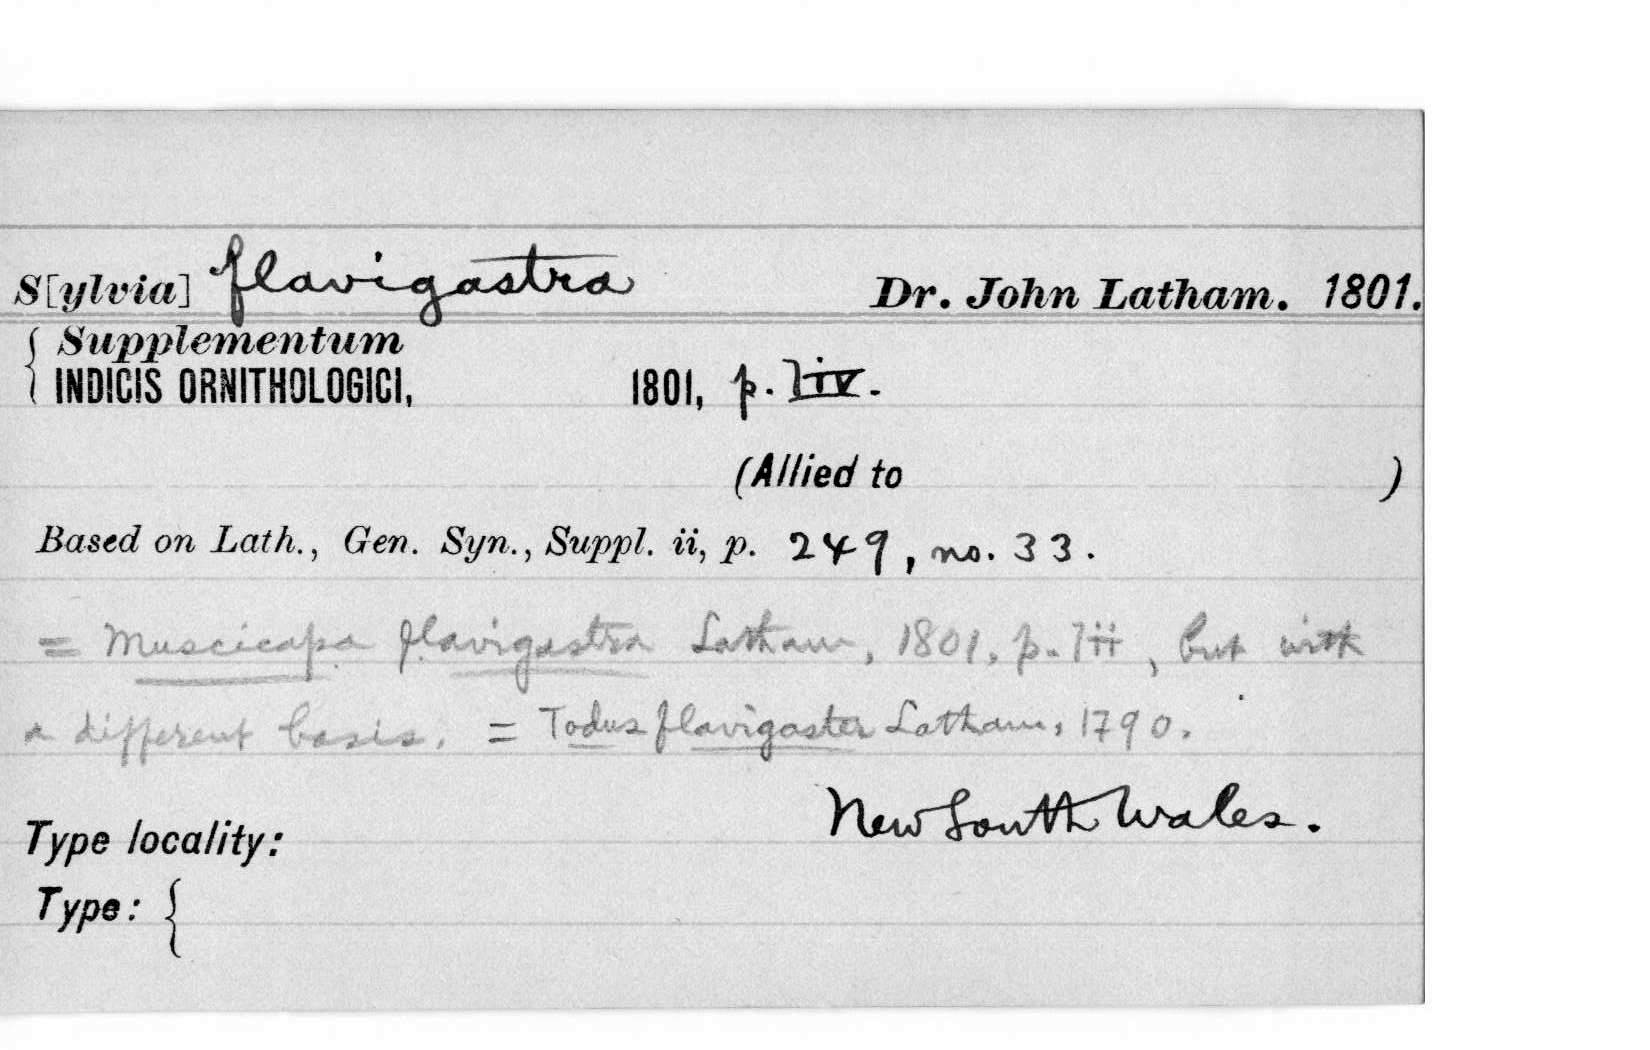 S[ylvia] flavigastra Dr. John Latham. 1801.
{ Supplementum
INDICIS ORNITHOLOGICI, 1801, p. liv.
(Allied to )
Based on Lath., Gen. Syn., Suppl. ii, p. 249, no. 33.
= Muscicapa flavigastra Latham, 1801, p. lii, but with
a different basis. = Todus flavigaster Latham, 1790.
New South Wales.
Type locality:
Type: {